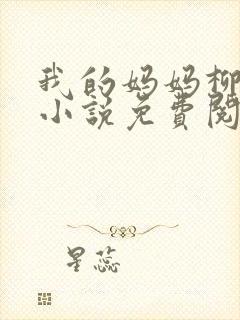 我的妈妈柳
小说免费阅
星蕊